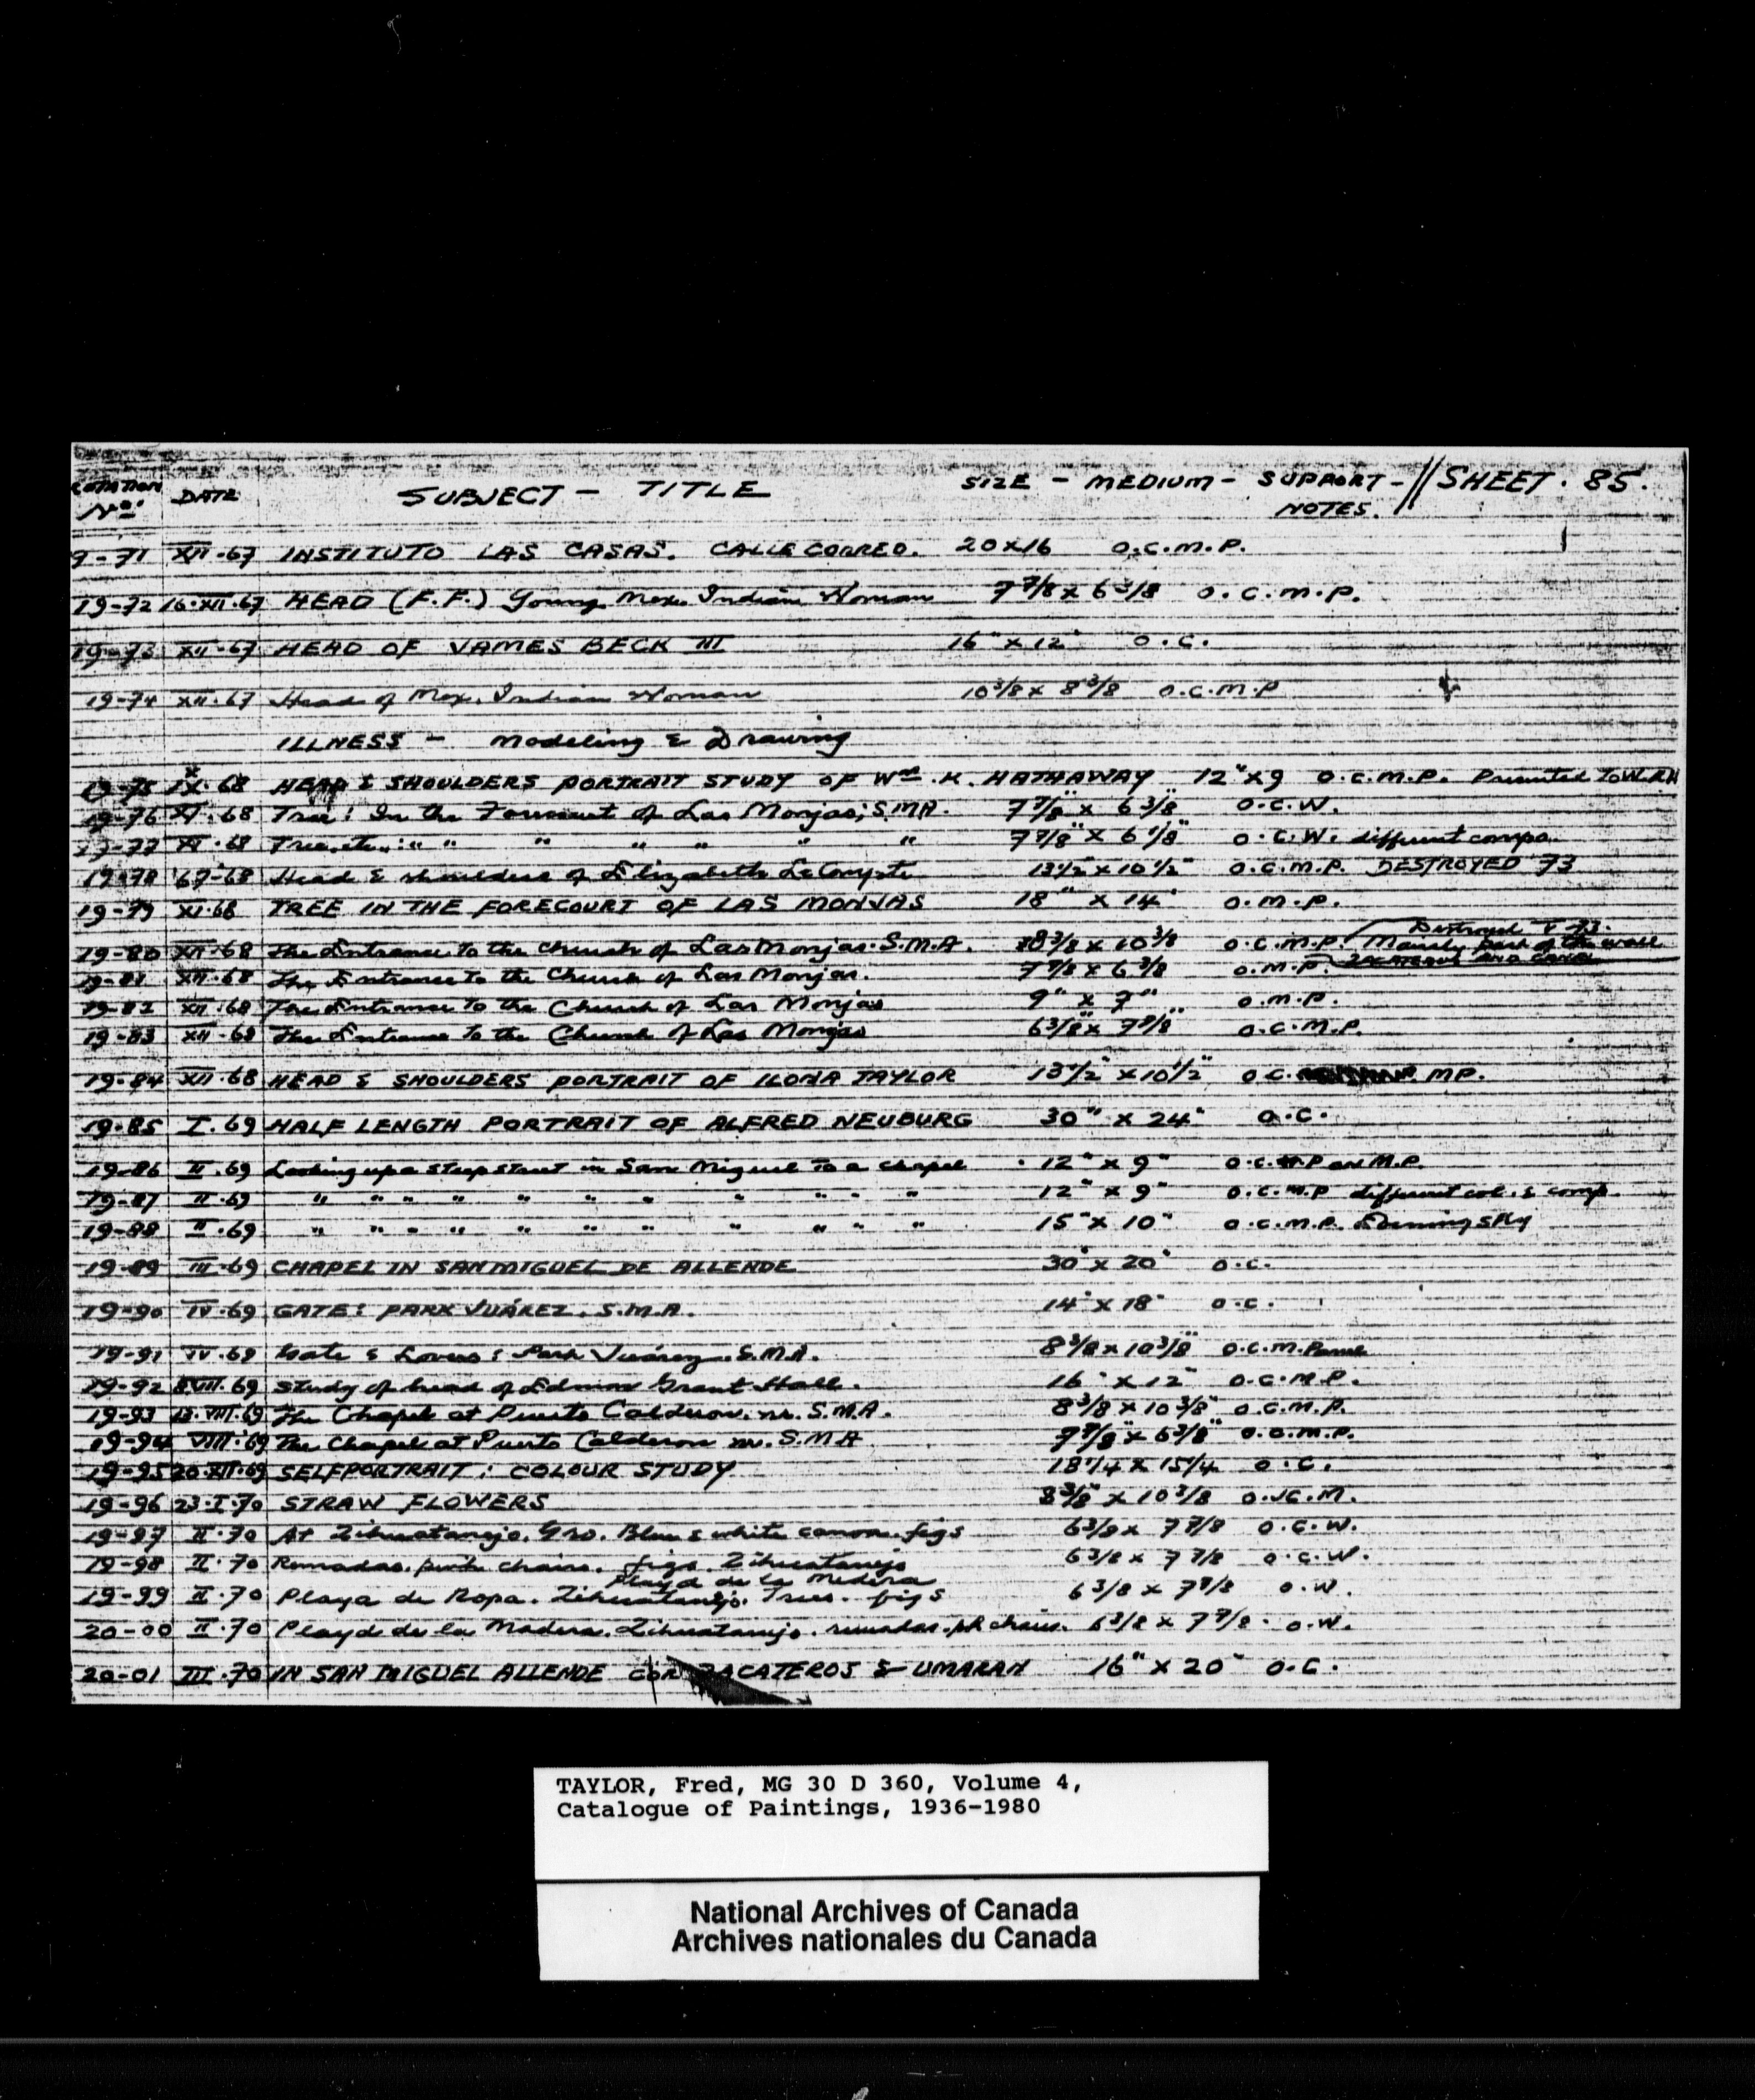 NOTATION No. DATE SUBJECT - TITLE SIZE - MEDIUM - SUPPORT - NOTES. // SHEET. 85.
9-71 XII.67 INSTITUTO LAS CASAS. CALLE CORREO. 20x16 O.C.M.P.
19-72 16.XII.67 HEAD (F.F.) Young Mex. Indian Woman 7 7/8 x 6 3/8 O.C.M.P.
19-73 XII.67 HEAD OF JAMES BECK III 16" x 12" O.C.
19-74 XII.67 Head of Mex. Indian Woman 10 3/8 x 8 3/8 O.C.M.P
ILLNESS - Modeling & Drawing
19-75 IX.68 HEAD & SHOULDERS PORTRAIT STUDY OF Wm. K. HATHAWAY 12" x 9 O.C.M.P. Presented to W.K.H
19-76 XI.68 Tree: In the Forecourt of Las Monjas; S.M.A. 7 7/8" x 6 3/8" O.C.W.
19-77 XI.68 Tree, etc: " " " " " " " 7 7/8" x 6 1/8" O.C.W. different compo.
19-78 '67-68 Head & shoulders of Elizabeth LeCompte 13 1/2" x 10 1/2" O.C.M.P. DESTROYED 73
19-79 XI.68 TREE IN THE FORECOURT OF LAS MONJAS 18" x 14" O.M.P.
19-80 XII.68 The Entrance to the Church of Las Monjas. S.M.A. 8 3/8 x 10 3/8 O.C.M.P. Destroyed V 73. Mainly part of the wall
19-81 XII.68 The Entrance to the Church of Las Monjas. 7 7/8 x 6 3/8 O.M.P.
19-82 XII.68 The Entrance to the Church of Las Monjas 9" x 7" O.M.P.
19-83 XII.68 The Entrance to the Church of Las Monjas 6 3/8" x 7 7/8" O.C.M.P.
19-84 XII.68 HEAD & SHOULDERS PORTRAIT OF ILONA TAYLOR 13 1/2" x 10 1/2" O.C. MP.
19-85 I.69 HALF LENGTH PORTRAIT OF ALFRED NEUBURG 30" x 24" O.C.
19-86 II.69 Looking up a steep street in San Miguel to a chapel 12" x 9" O.C. on M.P.
19-87 II.69 " " " " " " " " " " " 12" x 9" O.C.M.P different col. & comp.
19-88 II.69 " " " " " " " " " " " 15" x 10" O.C.M.P. Evening sky
19-89 III.69 CHAPEL IN SAN MIGUEL DE ALLENDE 30" x 20" O.C.
19-90 IV.69 GATE: PARK JUÁREZ. S.M.A. 14" x 18" O.C.
19-91 IV.69 Gate & Lovers: Park Juárez. S.M.A. 8 3/8 x 10 3/8" O.C.M.Panel
19-92 8VII.69 Study of head of Edmon Grant Hall. 16" x 12" O.C.M.P.
19-93 13.VIII.69 The Chapel at Puerto Calderon. nr. S.M.A. 8 3/8 x 10 3/8" O.C.M.P.
19-94 VIII.69 The Chapel at Puerto Calderon nr. S.M.A 7 7/8" x 6 3/8" O.C.M.P.
19-95 20.XII.69 SELFPORTRAIT: COLOUR STUDY 18 1/4 x 15 1/4 O.C.
19-96 23.I.70 STRAW FLOWERS 8 3/8" x 10 3/8 O.C.M.
19-97 II.70 At Zihuatanejo. Gro. Blue & white canoa. figs 6 3/8 x 7 7/8 O.C.W.
19-98 II.70 Ramadas. pink chairs. figs. Zihuatanejo 6 3/8 x 7 7/8 O.C.W.
Playa de la Madera
19-99 II.70 Playa de Ropa. Zihuatanejo. Trees. figs 6 3/8 x 7 7/8 O.W.
20-00 II.70 Playa de la Madera. Zihuatanejo. ramadas. pk chairs. 6 3/8 x 7 7/8. O.W.
20-01 III.70 IN SAN MIGUEL ALLENDE COR ZACATEROS & UMARAN 16" x 20" O.C.
TAYLOR, Fred, MG 30 D 360, Volume 4,
Catalogue of Paintings, 1936-1980
National Archives of Canada
Archives nationales du Canada